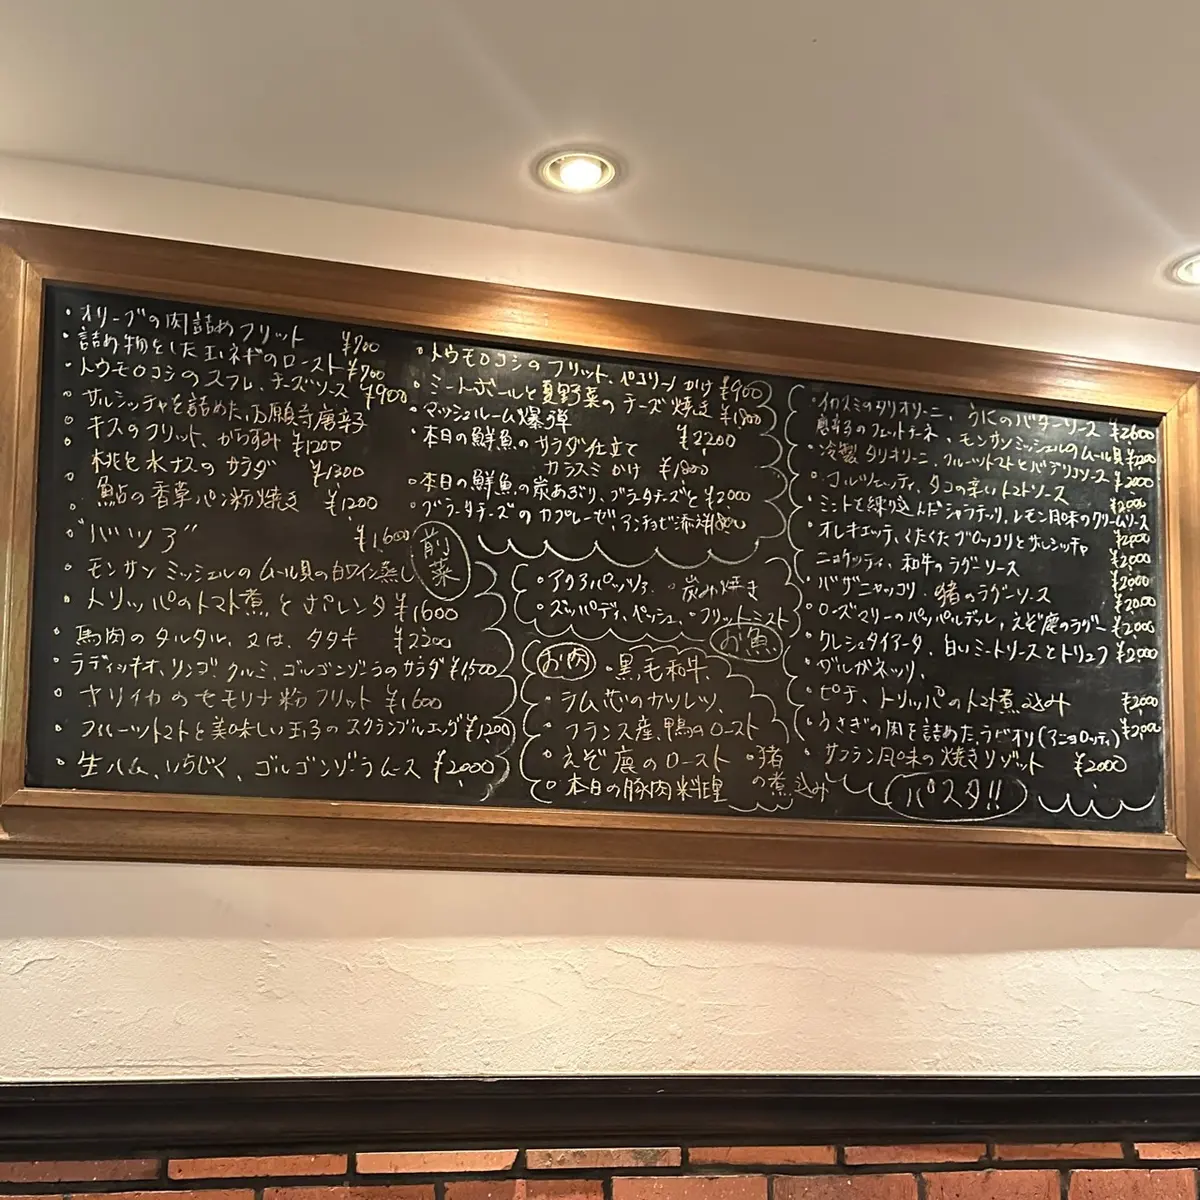 ・オリーブの肉詰めフリット ¥700
・詰め物をした玉ネギのロースト ¥700
・トウモロコシのスフレ、チーズソース ¥900
・サルシッチャを詰めた、万願寺唐辛子
・キスのフリット、からすみ ¥1200
・桃と水ナスのサラダ ¥1300
・鮎の香草パン粉焼き ¥1200
・"バッつァ" ¥1,600
・モンサンミッシェルのムール貝の白ワイン蒸し
・トリッパのトマト煮とポレンタ ¥1600
・馬肉のタルタル、又は、タタキ ¥2200
・ラディッキオ、リンゴ、クルミ、ゴルゴンゾーラのサラダ ¥1500
・ヤリイカのセモリナ粉フリット ¥1600
・フルーツトマトと美味しい玉子のスクランブルエッグ ¥1,200
・生ハム、いちじく、ゴルゴンゾーラムース ¥2000
前菜
・トウモロコシのフリット、ペコリーノかけ ¥900
・ミートボールと夏野菜のチーズ焼き ¥1800
・マッシュルーム爆弾
・本日の鮮魚のサラダ仕立て ¥2200
カラスミかけ ¥1800
・本日の鮮魚の炭あぶり、ブラータチーズと ¥2000
・ブラータチーズのカプレーゼ、アンチョビ添え
・アクアパッツァ ・炭火焼き
・ズッパ ディ ペッシェ ・フリットミスト
お魚
お肉
・黒毛和牛
・ラム芯のカツレツ、
・フランス産、鴨のロースト
・えぞ鹿のロースト ・猪の煮込み
・本日の豚肉料理
・イカスミのタリオリーニ、うにのバターソース ¥2600
フェットチーネ、モンサンミッシェルのムール貝 ¥2200
・冷製タリオリーニ、フルーツトマトとバジリコソース ¥2000
・ゴルツェッティ、タコの辛いトマトソース ¥2000
・ミントを練り込んだシャラテッリ、レモン風味のクリームソース ¥2000
・オレキエッテ、くたくたブロッコリとサルシッチャ ¥2000
・ニョケッティ、和牛のラグーソース ¥2000
・バヴェッテ、猪のラグーソース ¥2000
・ローズマリーのパッパルデッレ、えぞ鹿のラグー ¥2000
・クレシュタイアータ、白いミートソースとトリュフ ¥2000
・ガルガネッリ、
・ピチ、トリッパのトマト煮込み ¥2000
・うさぎの肉を詰めたラビオリ(アニョロッティ) ¥2000
・サフラン風味の焼きリゾット ¥2000
パスタ!!